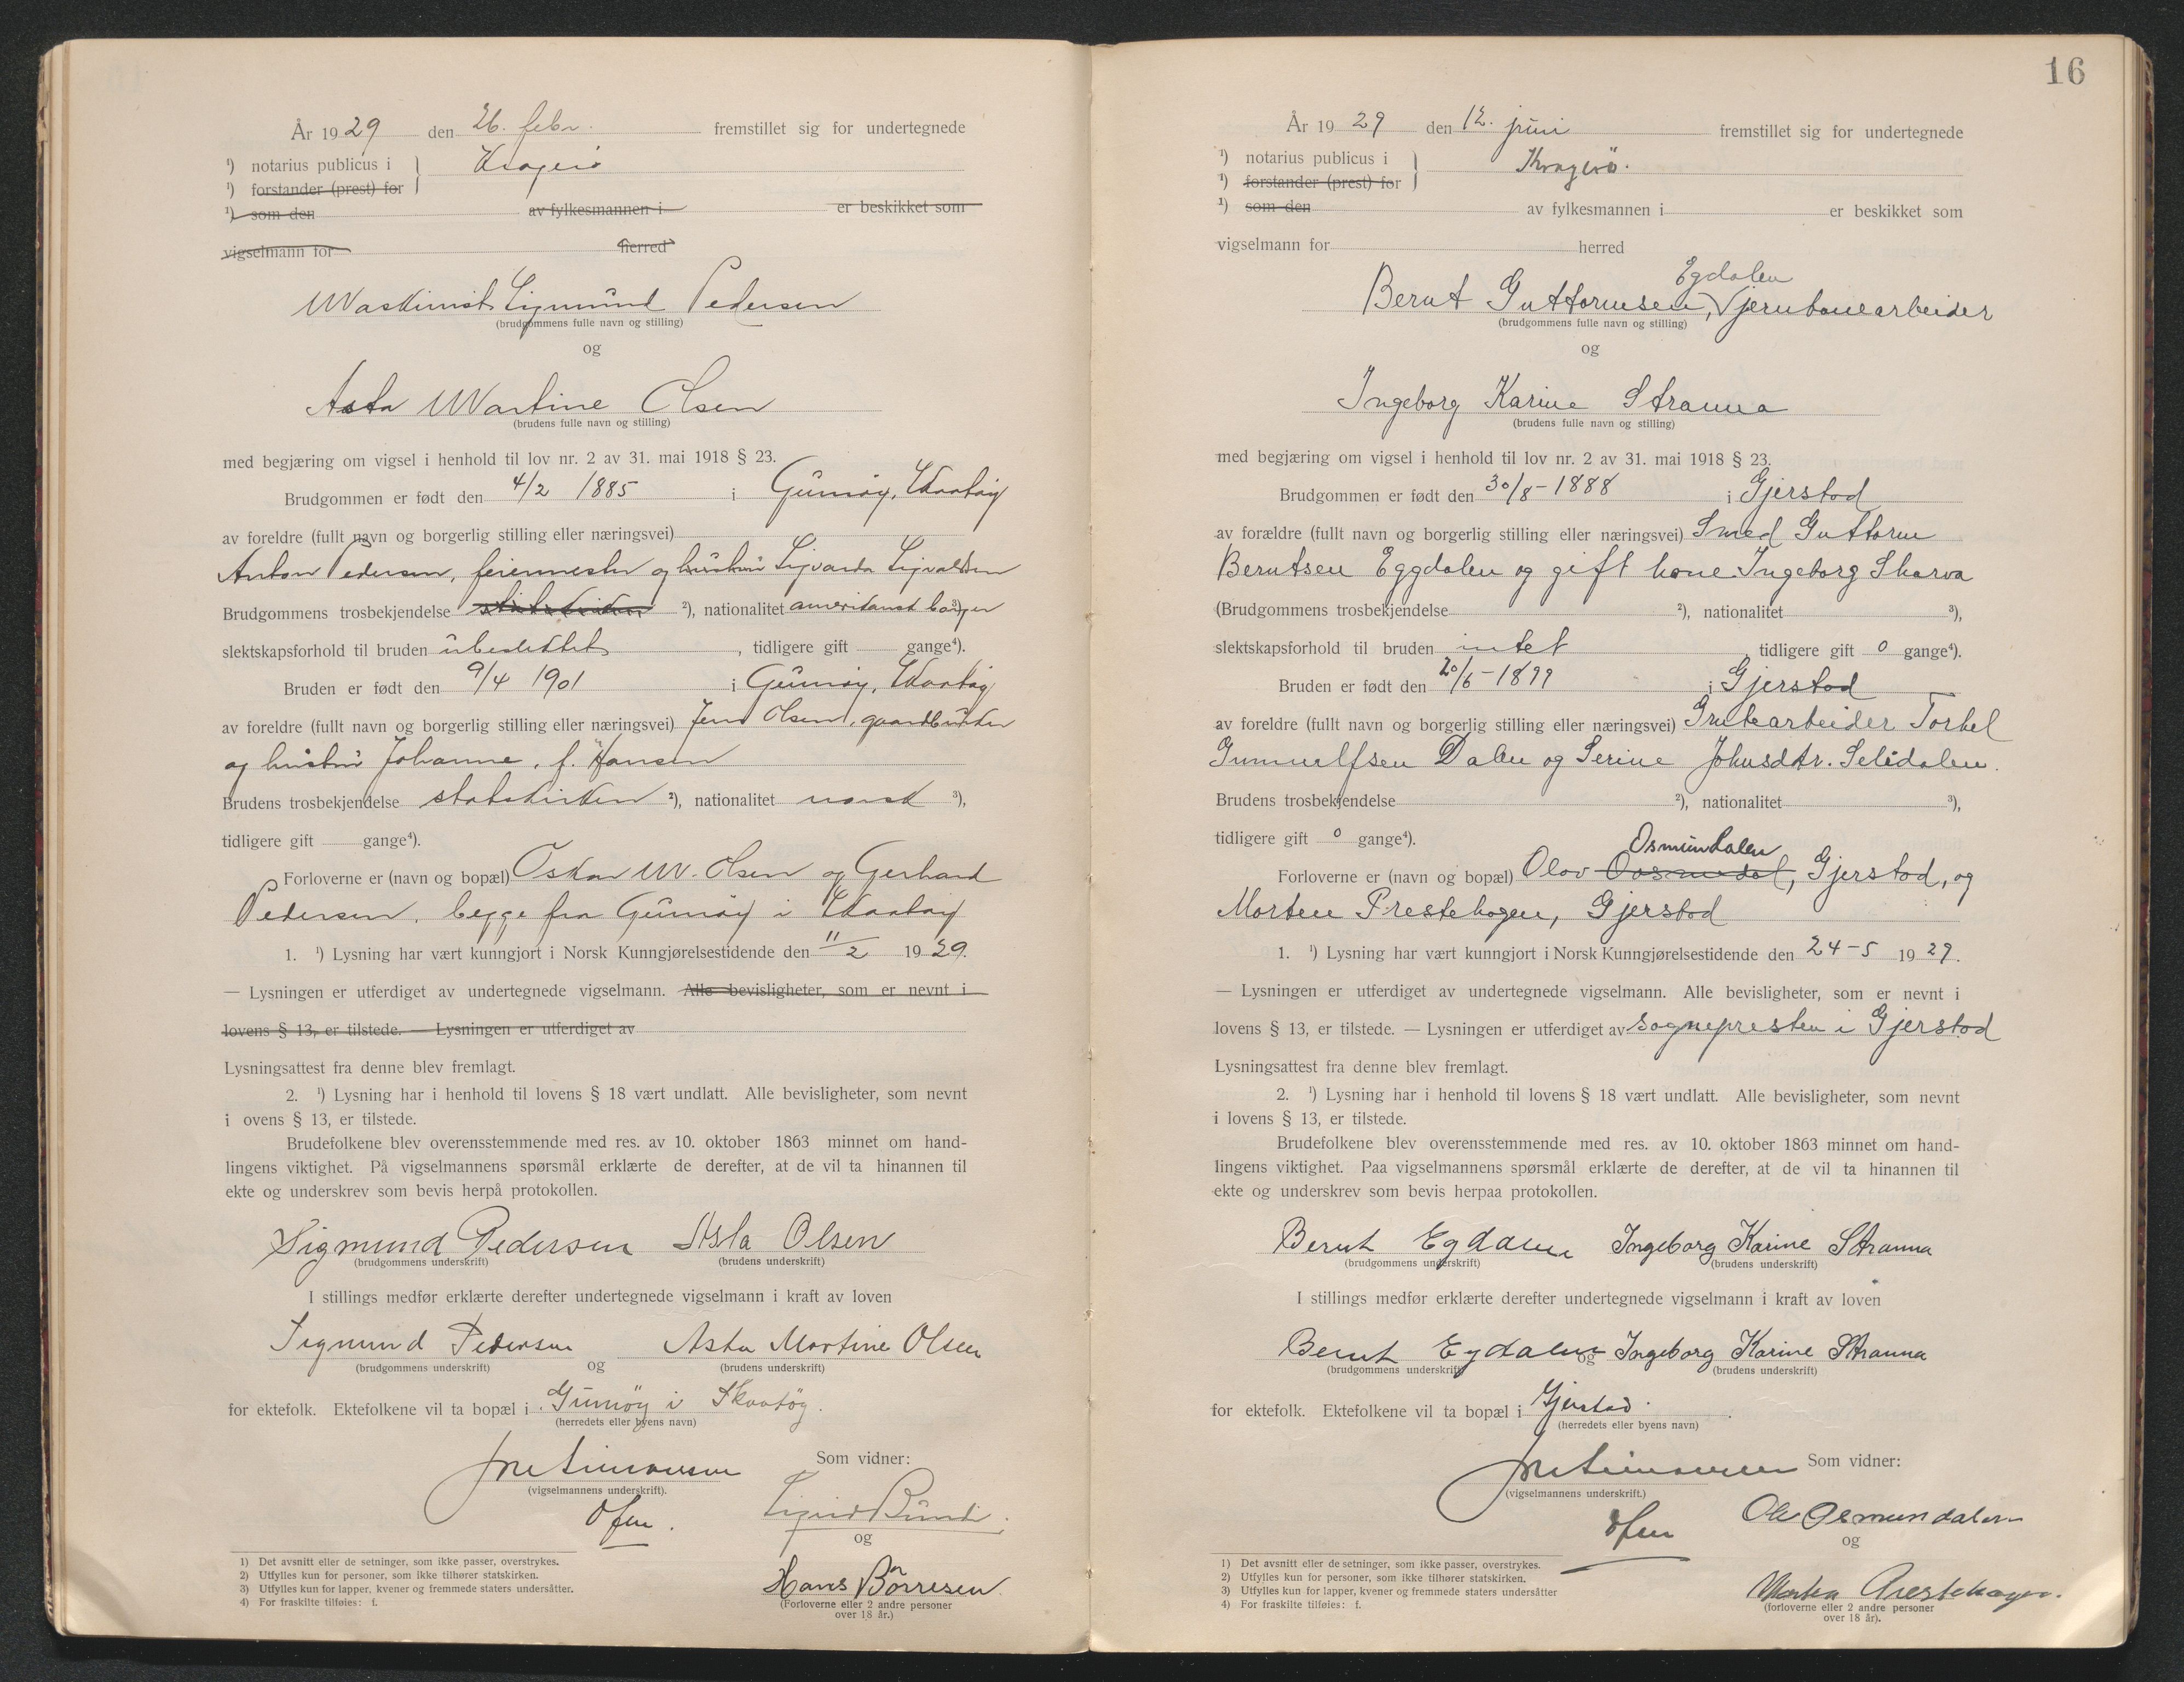 År 1929 den 26. febr. fremstillet sig for undertegnede
¹) notarius publicus i Kragerö
¹) forstander (prest) for
¹) som den av fylkesmannen i er beskikket som
vigselmann for herred
Maskinist Sigmund Pedersen
(brudgommens fulle navn og stilling)
og
Asta Martine Olsen
(brudens fulle navn og stilling)
med begjæring om vigsel i henhold til lov nr. 2 av 31. mai 1918 § 23.
Brudgommen er født den 4/2 1885 i Gumöy, Skaatöy
av foreldre (fullt navn og borgerlig stilling eller næringsvei)
Anton Pedersen, feiermester og hustru Sigvarda Sigvaldsen
Brudgommens trosbekjendelse statskirken ²), nationalitet amerikansk borger ³),
slektskapsforhold til bruden ubeslektet, tidligere gift gange⁴).
Bruden er født den 9/4 1901 i Gumöy, Skaatöy
av foreldre (fullt navn og borgerlig stilling eller næringsvei) Jens Olsen, gaardbruker
og hustru Johanne, f. Hansen
Brudens trosbekjendelse statskirken ²), nationalitet norsk ³),
tidligere gift gange⁴).
Forloverne er (navn og bopæl) Oskar M. Olsen og Gerhard
Pedersen, begge fra Gumöy i Skaatöy
1. ¹) Lysning har vært kunngjort i Norsk Kunngjørelsestidende den 11/2 1929.
— Lysningen er utferdiget av undertegnede vigselmann. Alle bevisligheter, som er nevnt i
lovens § 13, er tilstede. — Lysningen er utferdiget av
Lysningsattest fra denne blev fremlagt.
2. ¹) Lysning har i henhold til lovens § 18 vært undlatt. Alle bevisligheter, som nevnt
i ovens § 13, er tilstede.
Brudefolkene blev overensstemmende med res. av 10. oktober 1863 minnet om hand-
lingens viktighet. På vigselmannens spørsmål erklærte de derefter, at de vil ta hinannen til
ekte og underskrev som bevis herpå protokollen.
Sigmund Pedersen Asta Olsen
(brudgommens underskrift) (brudens underskrift)
I stillings medfør erklærte derefter undertegnede vigselmann i kraft av loven
Sigmund Pedersen og Asta Martine Olsen
(brudgommens underskrift) (brudens underskrift)
for ektefolk. Ektefolkene vil ta bopæl i Gumöy i Skaatöy.
(herredets eller byens navn)
Som vidner:
(vigselmannens underskrift).
Sigrid
og
Hans Börresen
(Forloverne eller 2 andre personer
over 18 år.)
1) Det avsnitt eller de setninger, som ikke passer, overstrykes.
2) Utfylles kun for personer, som ikke tilhører statskirken.
3) Utfylles kun for lapper, kvener og fremmede staters undersåtter.
4) For fraskilte tilføies: f.
16
År 1929 den 12. juni fremstillet sig for undertegnede
¹) notarius publicus i Kragerö.
¹) forstander (prest) for
¹) som den av fylkesmannen i er beskikket som
vigselmann for herred
Egdalen
Bernt Guttormsen, V jernbanearbeider
(brudgommens fulle navn og stilling)
og
Ingeborg Karine Stranna
(brudens fulle navn og stilling)
med begjæring om vigsel i henhold til lov nr. 2 av 31. mai 1918 § 23.
Brudgommen er født den 30/8-1888 i Gjerstad
av forældre (fullt navn og borgerlig stilling eller næringsvei) Smed Guttorm
Berntsen Eggdalen og gift kone Ingeborg Skarva
(Brudgommens trosbekjendelse ²), nationalitet ³),
slektskapsforhold til bruden intet, tidligere gift 0 gange⁴).
Bruden er født den 20/6-1899 i Gjerstad
av foreldre (fullt navn og borgerlig stilling eller næringsvei) Grubearbeider Torkel
Gunnulfsen Dalen og Serine Johnsdtr. Selidalen.
Brudens trosbekjendelse ²), nationalitet ³),
tidligere gift 0 gange⁴).
Osmundalen
Forloverne er (navn og bopæl) Olav Gjerstad, og
Morten Prestehagen, Gjerstad
1. ¹) Lysning har vært kunngjort i Norsk Kunngjørelsestidende den 24-5 1929.
— Lysningen er utferdiget av undertegnede vigselmann. Alle bevisligheter, som er nevnt i
lovens § 13, er tilstede. — Lysningen er utferdiget av sognepresten i Gjerstad
Lysningsattest fra denne blev fremlagt.
2. ¹) Lysning har i henhold til lovens § 18 vært undlatt. Alle bevisligheter, som nevnt
i lovens § 13, er tilstede.
Brudefolkene blev overensstemmende med res. av 10. oktober 1863 minnet om hand-
lingens viktighet. Paa vigselmannens spørsmål erklærte de derefter, at de vil ta hinannen til
ekte og underskrev som bevis herpaa protokollen.
Bernt Egdalen Ingeborg Karine Stranna
(brudgommens underskrift) (brudens underskrift)
I stillings medfør erklærte derefter undertegnede vigselmann i kraft av loven
Bernt Egdalen og Ingeborg Karine Stranna
(brudgommens underskrift) (brudens underskrift)
for ektefolk. Ektefolkene vil ta bopæl i Gjerstad.
(herredets eller byens navn)
Som vidner:
(vigselmannens underskrift.)
Ole Osmundalen
og
Morten Prestehagen.
(forloverne eller 2 andre personer
over 18 år).
1) Det avsnitt eller de setninger, som ikke passer, overstrykes.
2) Utfylles kun for personer, som ikke tilhører statskirken.
3) Utfylles kun for lapper, kvener og fremmede staters undersåtter
4) For fraskilte tilføies: f.